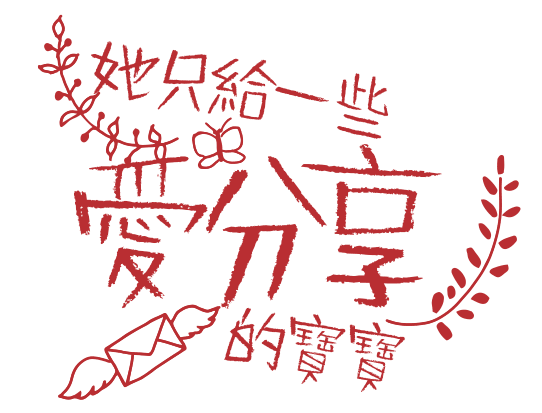 她只給一些
愛分享
的寶寶